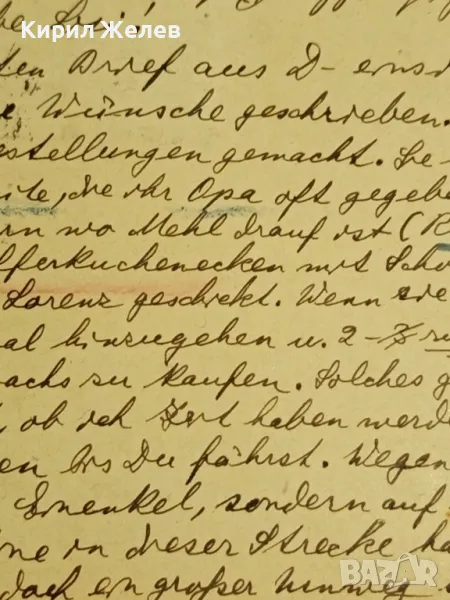 Кирил Желев
Brief aus D-
Wünsche geschrieben.
estellungen gemacht.
die ihr Opa oft gegebe
wo Mehl drauf ist (R
fferkuchenecken mit Scho
Lorenz geschickt. Wenn sie
al hinzugehen u. 2-
achs zu kaufen. Solches g
ob ich Zeit haben werde
en bis Du fährst. Wegen
Einenkel, sondern auf
ne in dieser Strecke ha
doch ein großer Umweg
BAZAR